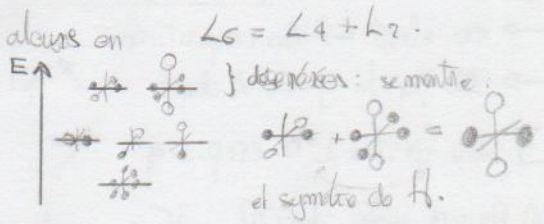 alors on L6 = L4 + L2.
E } dégénérées : se montre :
+ =
et symétrie de H.